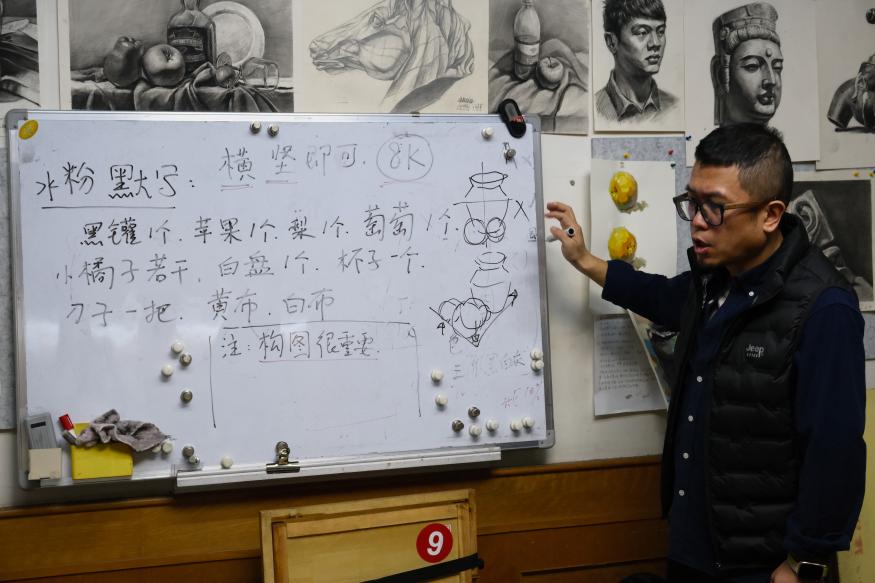 横竖即可. 8K
水粉默写:
黑罐1个. 苹果1个. 梨1个. 葡萄1个.
小橘子若干. 白盘1个. 杯子一个.
刀子一把. 黄布. 白布
注: 构图很重要.
X
Jeep
9